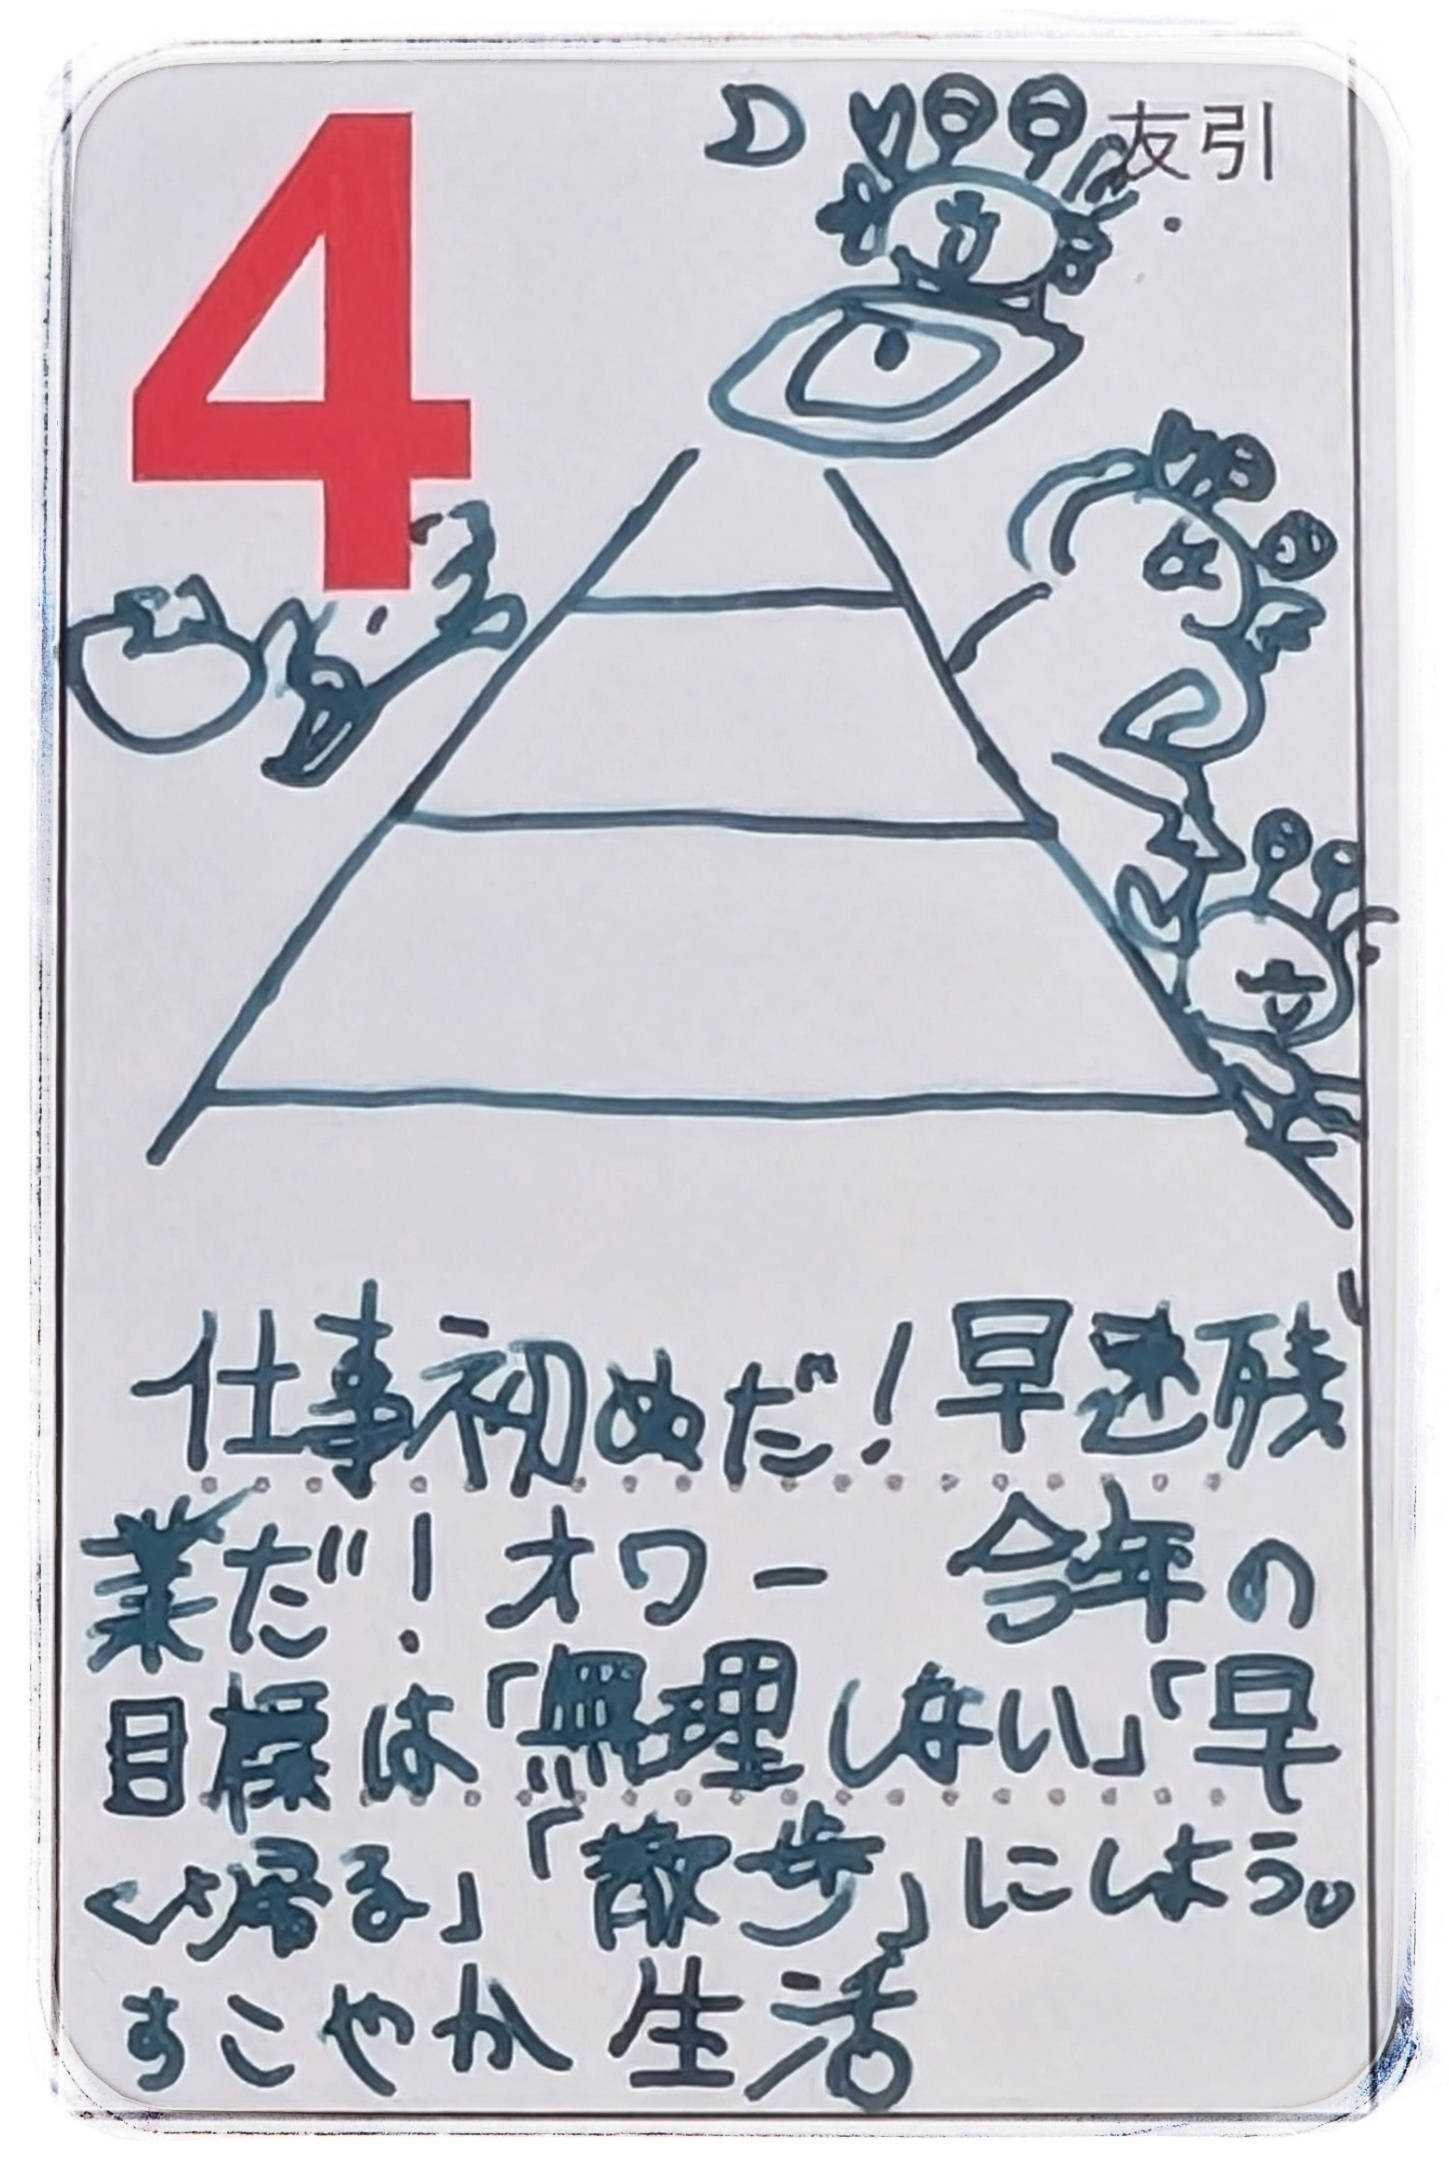 4
友引
仕事初めだ！早速残
業だ！オワー 今年の
目標は「無理しない」「早
く帰る」「散歩」にしよう。
すこやか生活